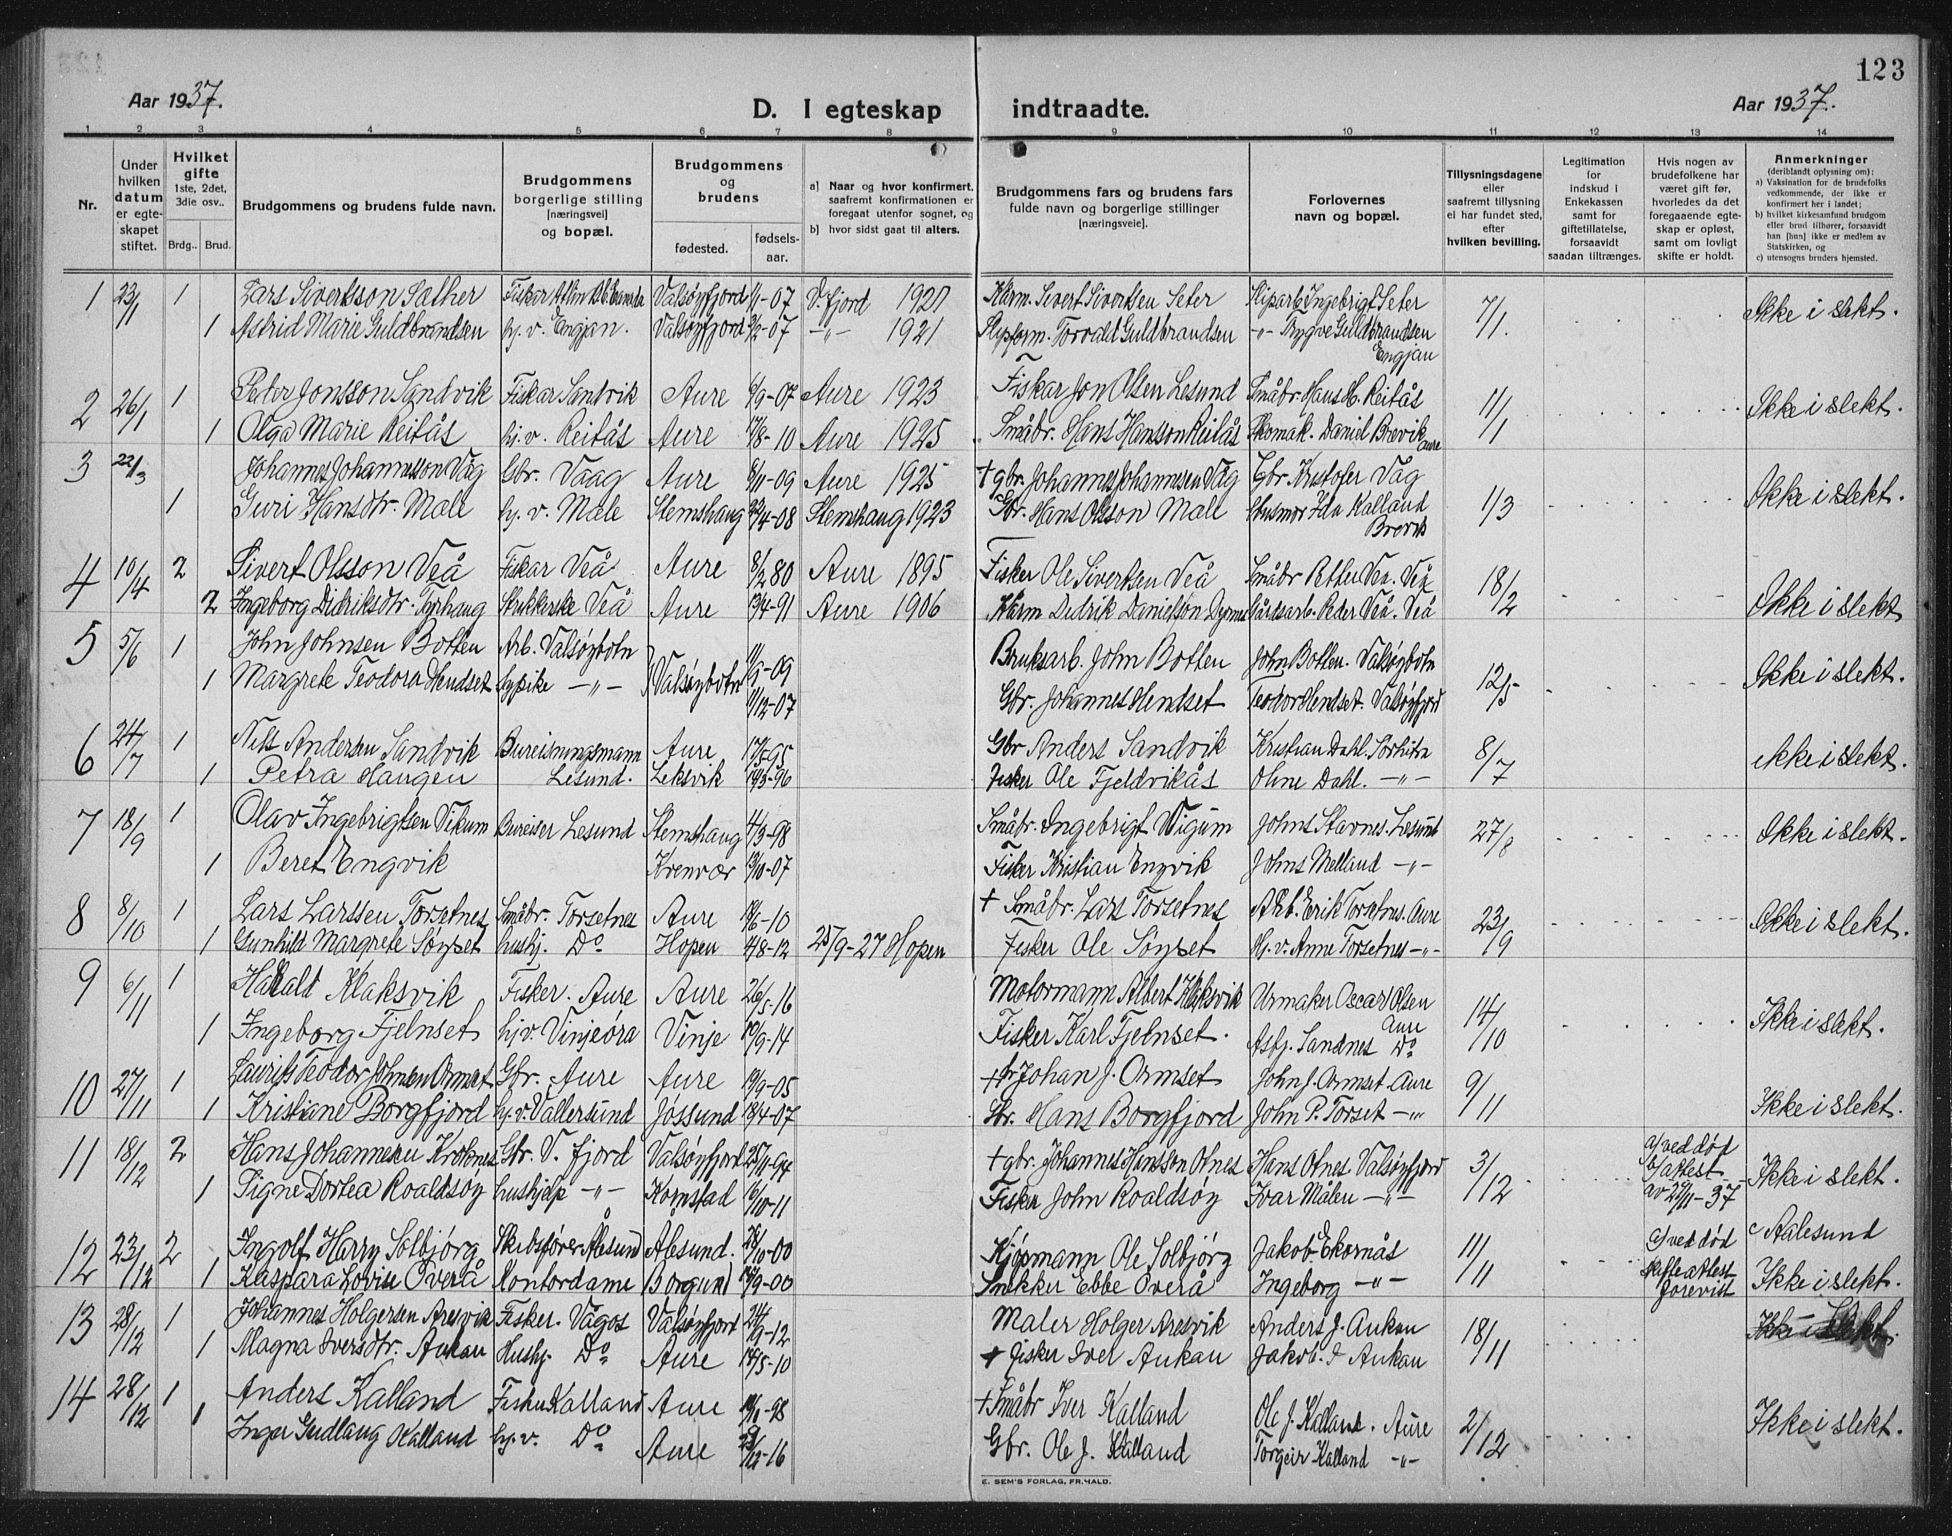 123
Aar 1937.
D. I egteskap indtraadte.
Aar 1937.
1 2 3 4 5 6 7 8 9 10 11 12 13 14
Nr.
Under hvilken datum er egteskapet stiftet.
Hvilket gifte 1ste, 2det, 3die osv..
Brdg..
Brud.
Brudgommens og brudens fulde navn.
Brudgommens borgerlige stilling [næringsvei] og bopæl.
Brudgommens og brudens
fødested.
fødselsaar.
a] Naar og hvor konfirmert, saafremt konfirmationen er foregaat utenfor sognet, og
b] hvor sidst gaat til alters.
Brudgommens fars og brudens fars fulde navn og borgerlige stillinger [næringsveie].
Forlovernes navn og bopæl.
Tillysningsdagene eller saafremt tillysning ei har fundet sted, efter hvilken bevilling.
Legitimation for indskud i Enkekassen samt for giftetillatelse, forsaavidt saadan tiltrænges.
Hvis nogen av brudefolkene har været gift før, hvorledes da det foregaaende egteskap er opløst, samt om lovlig skifte er holdt.
Anmerkninger (deriblandt oplysning om):
a) Vaksination for de brudefolks vedkommende, der ikke er konfirmert her i landet;
b) hvilket kirkesamfund brudgom eller brud tilhører, forsaavidt han [hun] ikke er medlem av Statskirken, og
c) utensogns bruders hjemsted.
1 23/1 1 Lars Sivertsson Sæther Fiskar Valsøyfjord 1/1-07 V. fjord 1921 Kårm. Sivert Sivertsen Seter Sliparb. Ingebrigt Seter 7/1 Ikke i slekt.
1 Astrid Marie Guldbrandsen hj. v. Engjan. Valsøyfjord 9/2-07 -"- 1921 Slipform. Torvald Guldbrandsen -"- Trygve Guldbrandsen Engjan
2 26/1 1 Peter Jonsson Sandvik Fiskar Sandvik Aure 6/9-07 Aure 1923 Fiskar Jon Olsen Lesund Småbr. Hans H. Reitås 11/1 Ikke i slekt.
1 Olga Marie Reitås hj. v. Reitås Aure 17/8-10 Aure 1925 Småbr. Hans Hansson Reitås Skomak. Daniel Brevik Aure
3 22/3 Johannes Johannesson Våg Gbr. Vaag Aure 8/11-09 Aure 1925 + gbr. Johannes Johannesen Våg Gbr. Kristofer Våg 1/3 Ikke i slekt.
1 Guri Hansdtr. Male hj. v. Male Stemshaug 22/4-08 Stemshaug 1923 Gbr. Hans Olsson Male Husmor Ida Kalland Brevik
4 10/4 2 Sivert Olsson Veå Fiskar Veå Aure 8/2 80 Aure 1895 Fisker Ole Sivertsen Veå Småbr Petter Vea. Veå 18/2 Ikke i slekt
2 Ingeborg Didriksdtr. Typhaug Strikkerske Veå Aure 13/4-91 Aure 1906 Kårm Didrik Danielson Gårdsarb. Peder Veå. Veå
5 5/6 1 John Johnsen Botten Arb. Valsøybotn Valsøybotn 11/9-09 Bruksarb. John Botten John Botten. Valsøybotn 12/5 Ikke i slekt.
1 Margrete Teodora Hendset -"- 11/12-07 Gbr. Johannes Hendset Teodor Hendset. Valsøyfjord
6 24/7 1 Nils Andersen Sandvik Bureisningsmann Aure 17/5-95 Gbr Anders Sandvik Kristian Dahl. 8/7 ikke i slekt.
1 Petra Haugen Lesund. Leksvik 14/3-96 Fisker Ole Fjeldvikås Oline Dahl. -"-
7 18/9 1 Olav Ingebrigtsen Vikum Bureiser Lesund Stemshaug 4/3-98 Småbr. Ingebrigt Vigum Johns Stavnes. Lesund 27/8 Ikke i slekt.
1 Beret Engvik Krenvær 13/10-07 Fisker Kristian Engvik Johns Melland -"-
8 8/10 1 Lars Larssen Torsetnes Småbr. Torsetnes Aure 14/6-10 + Småbr. Lars Torsetnes Arb. Erik Torsetnes. Aure 23/9 Ikke i slekt.
1 Gunhild Margrete Søyset hushj. Do Hopen 4/8-12 25/9-27 Hopen Fisker Ole Søyset Hj. v. Anna Torsetnes -"-
9 6/11 1 Harald Klaksvik Fisker. Aure Aure 26/5-16 Motormann Albert Klaksvik Urmaker Oscar Olsen Aure 14/10 Ikke i slekt.
1 Ingeborg Fjelnset hj.v. Vinjeøra Vinje 10/9-14 Fisker Karl Fjelnset. Asbj. Sandnes Do
10 27/11 1 Laurits Teodor Johnsen Ormset Gbr. Aure Aure 19/9-05 + Johan J. Ormset John J. Ormset. Aure 9/11 Ikke i slekt.
1 Kristiane Borgfjord hj.v. Vallersund Jøssund 18/4-07 Gbr. Hans Borgfjord John P. Torset -"-
11 18/12 2 Hans Johannesen Kroknes Gbr. V. fjord Valsøyfjord 25/11-94 + gbr. Johannes Hansson Otnes Hans Otnes Valsøyfjord 3/12 a/ ved død b/ attest av 29/11-37 Ikke i slekt.
1 Signe Dortea Roaldsøy hushjelp -"- Kornstad 6/10-11 Fisker John Roaldsøy Ivar Målen -"-
12 23/12 2 Ingolf Harry Solbjørg Skibsfører Ålesund Ålesund. 28/10-00 Kjøpmann Ole Solbjørg Jakob Ekornås 11/11 a/ ved død skifteattest forevist c Aalesund
1 Kaspara Lovise Overå Kontordame Borgund 15/9-00 Snekker Ebbe Overå Ingeborg -"- Ikke i slekt.
13 28/12 1 Johannes Holgersen Aresvik Fisker. Vågos Valsøyfjord 24/9-12 Maler Holger Aresvik Anders J. Aukan 18/11 Ikke i slekt.
1 Magna Iversdtr. Aukan Hushj. Do Aure 14/5-10 + Fisker Iver Aukan Jakob. I Aukan
14 28/12 1 Anders Kalland Fisker Kalland Aure + Småbr Iver Kalland Ole J. Kalland. Aure 2/12 Ikke i slekt.
1 Inger Gudlaug Kalland hj. v. Do Aure 23/12-16 Gbr. Ole J. Kalland Torgeir Kalland -"-
E. SEM'S FORLAG, FR.HALD.